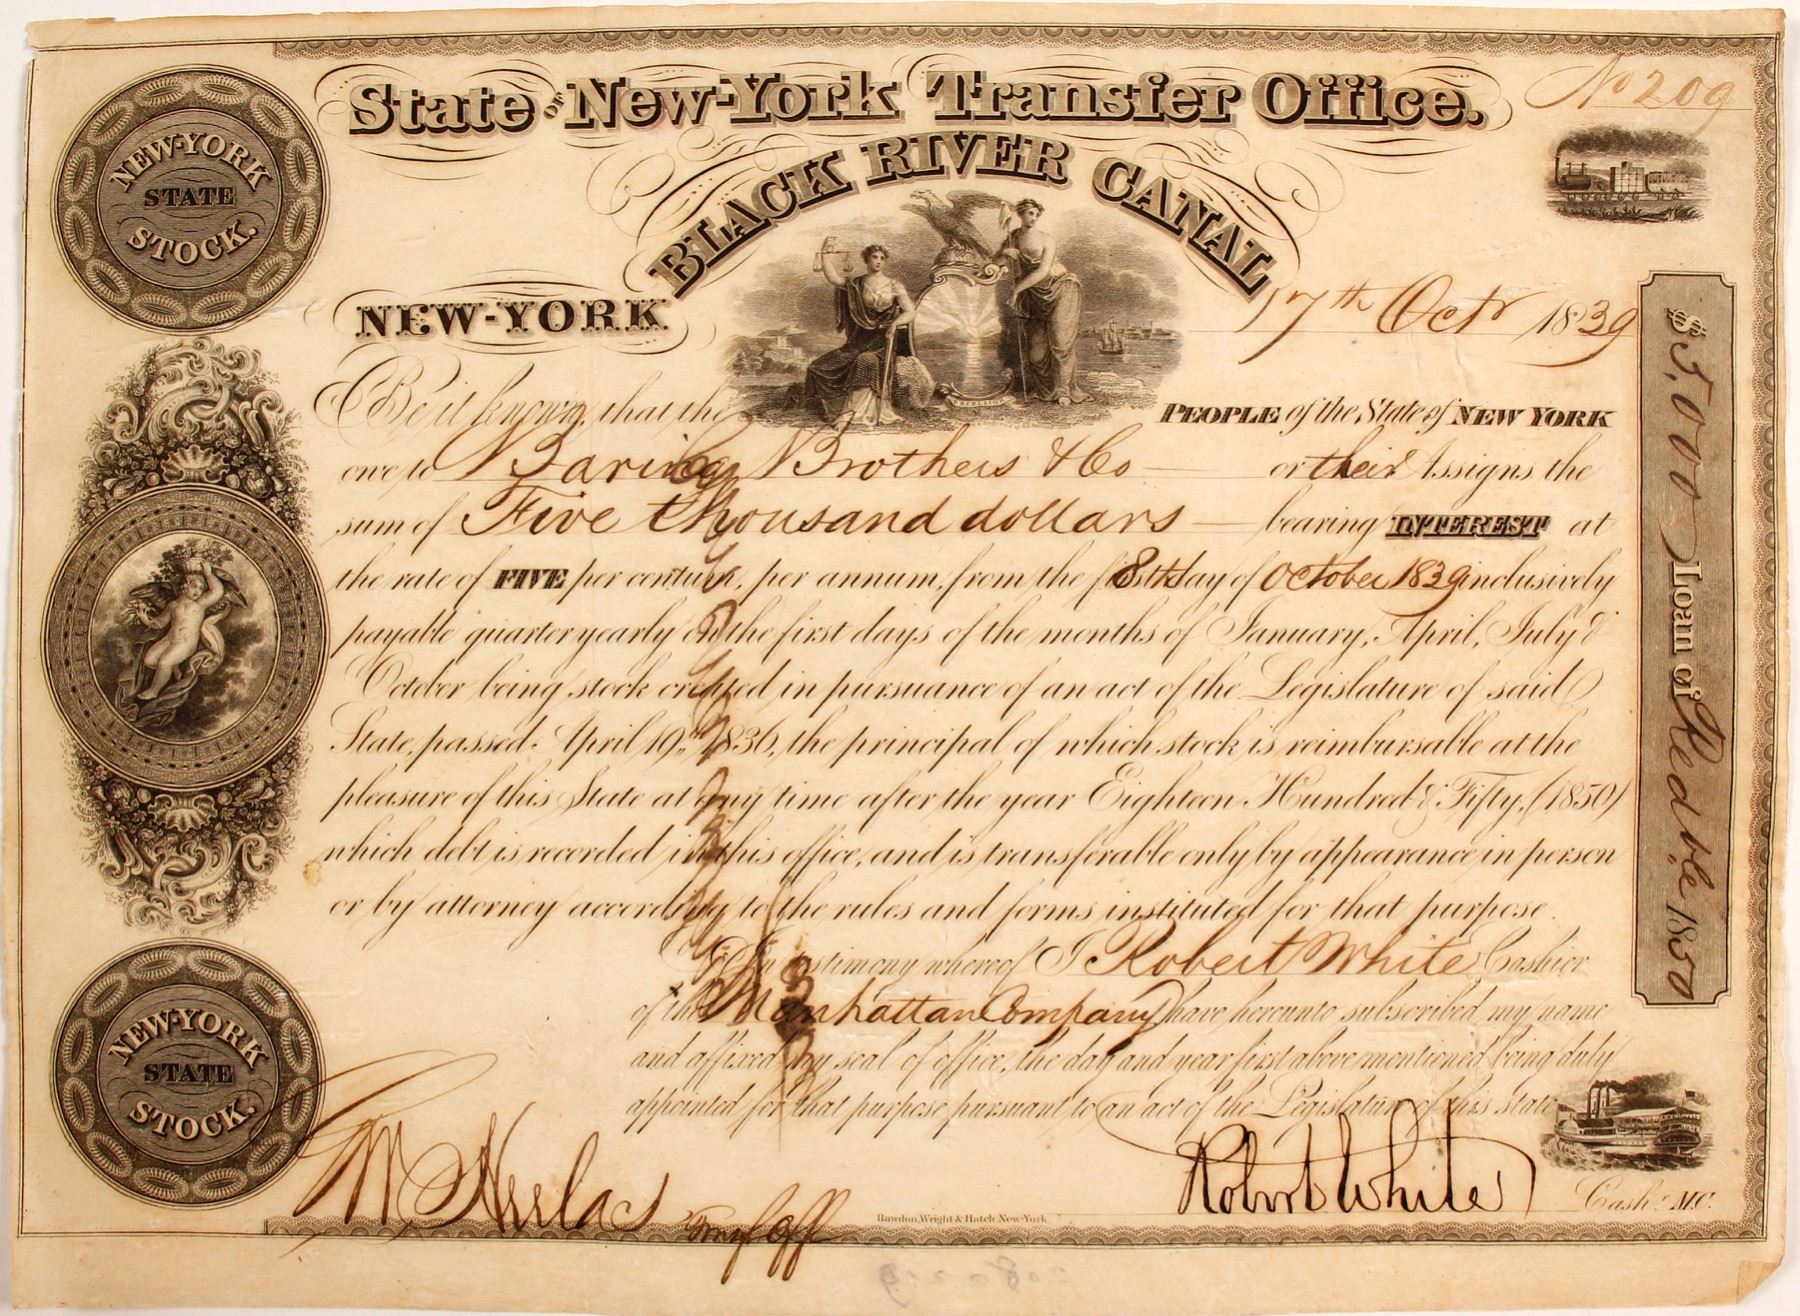 State OF New-York Transfer Office.
No 209
BLACK RIVER CANAL
NEW-YORK
STATE
STOCK.
NEW-YORK
17th Octr 1839
Be it known, that the PEOPLE of the State of NEW YORK
owe to Baring Brothers & Co or their Assigns the
sum of Five thousand dollars bearing INTEREST at
the rate of FIVE per centum, per annum, from the 8th day of October 1839 inclusively
payable quarter yearly on the first days of the months of January, April, July &
October being stock created in pursuance of an act of the Legislature of said
State, passed April 19th 1836, the principal of which stock is reimbursable at the
pleasure of this State at any time after the year Eighteen Hundred & Fifty, (1850)
which debt is recorded in this office, and is transferable only by appearance in person
or by attorney according to the rules and forms instituted for that purpose.
In testimony whereof I Robert White Cashier
of the Manhattan Company have hereunto subscribed my name
and affixed my seal of office, the day and year first above mentioned being duly
appointed for that purpose pursuant to an act of the Legislature of this State
$5,000 Loan of Redble 1850
EXCELSIOR
NEW-YORK
STATE
STOCK.
Robt White
Cashr M.C.
Rawdon, Wright & Hatch New-York.